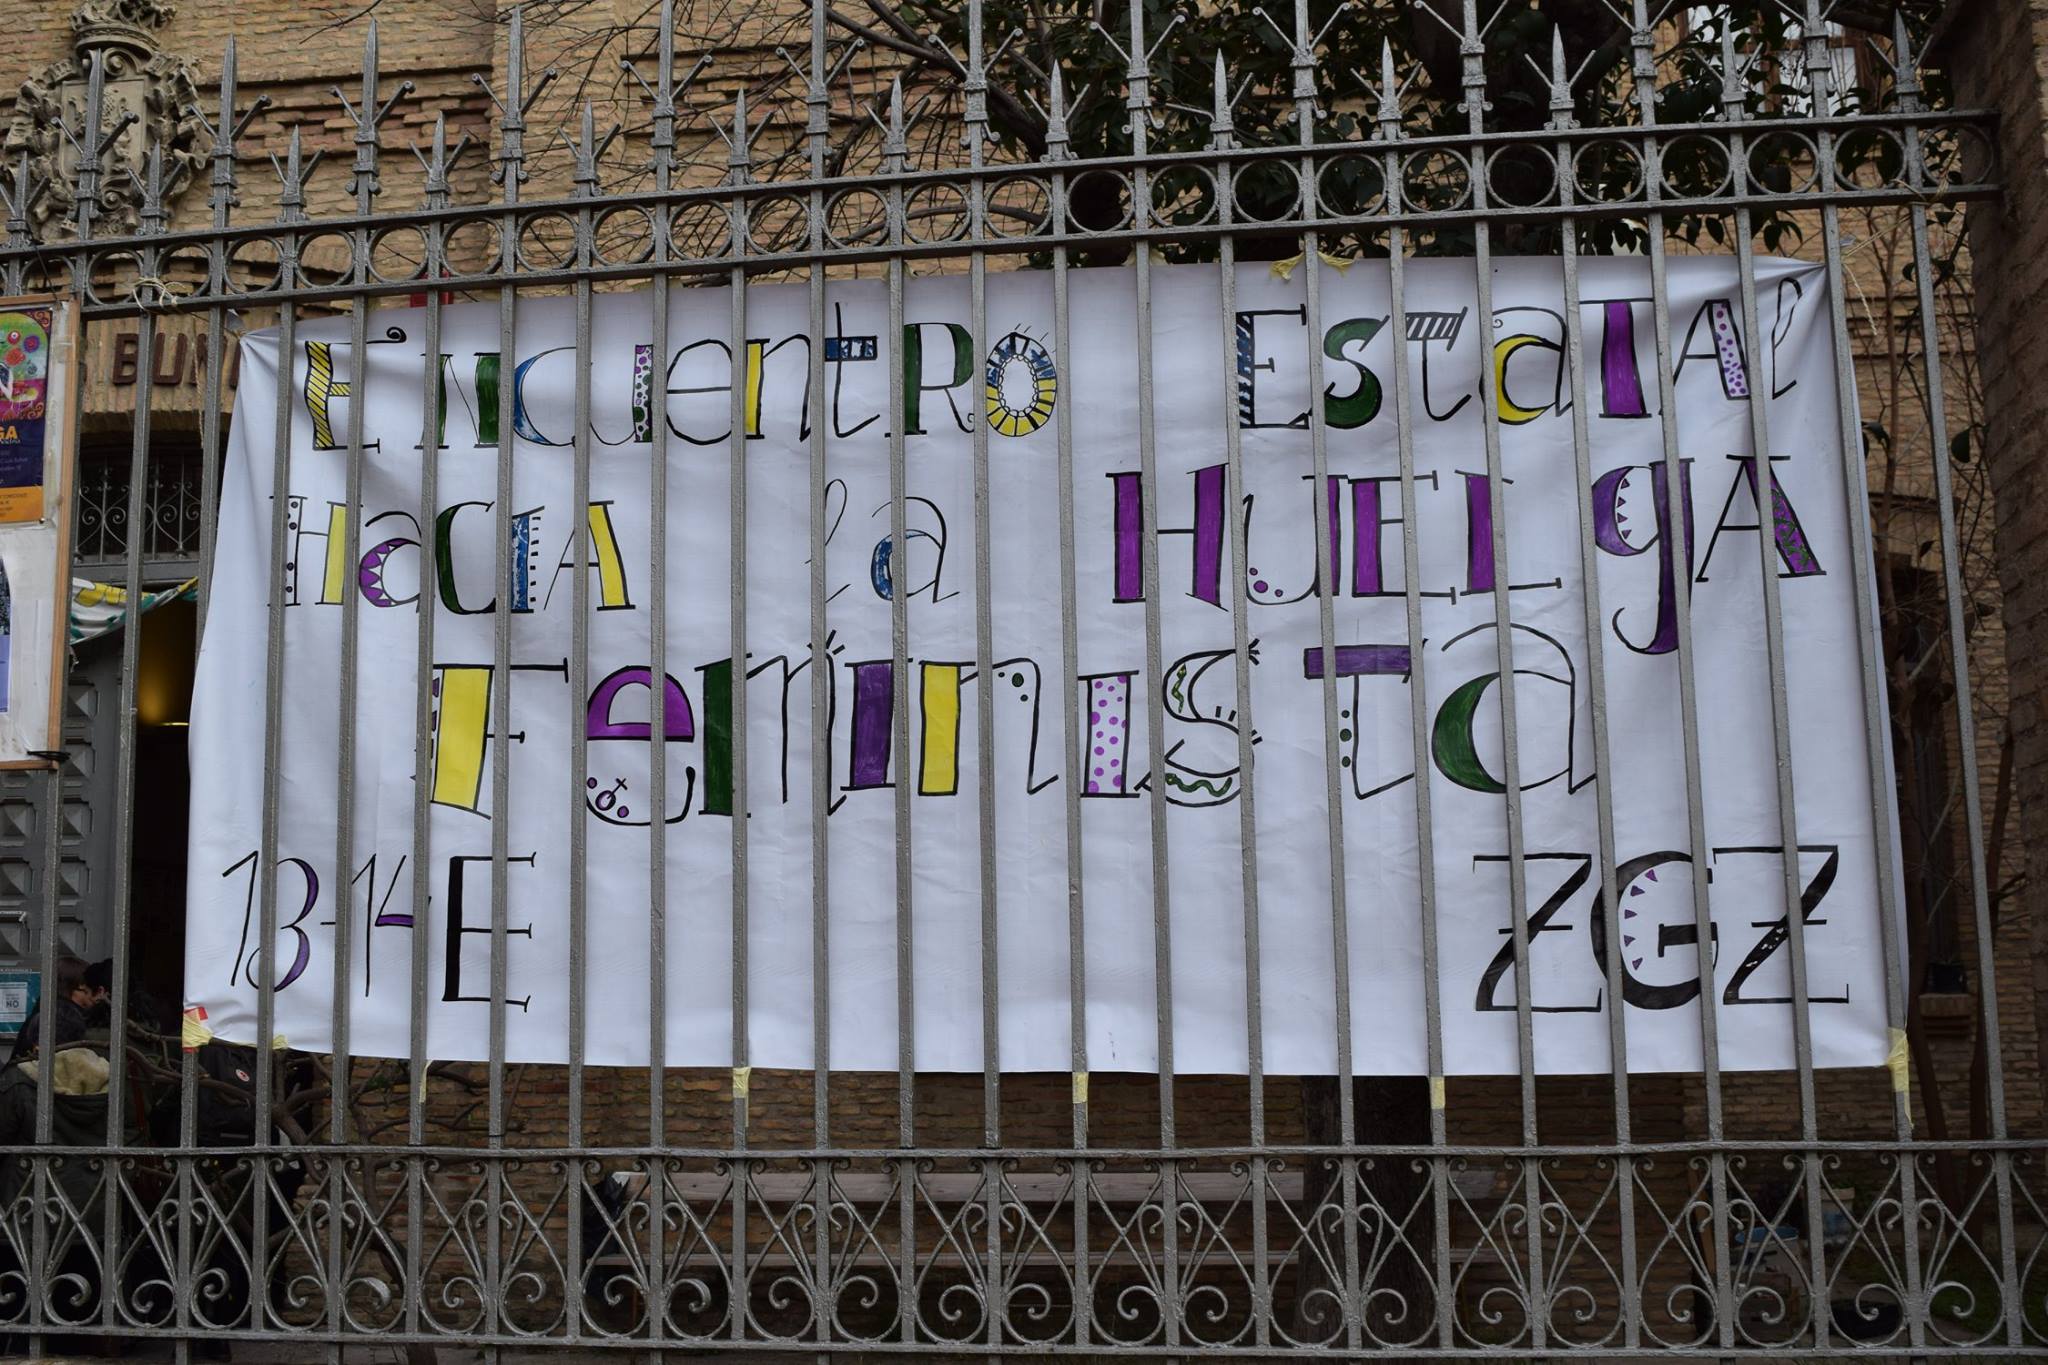 Encuentro Estatal
Hacia la Huelga
Feminista
13-14E ZGZ
GA
NO